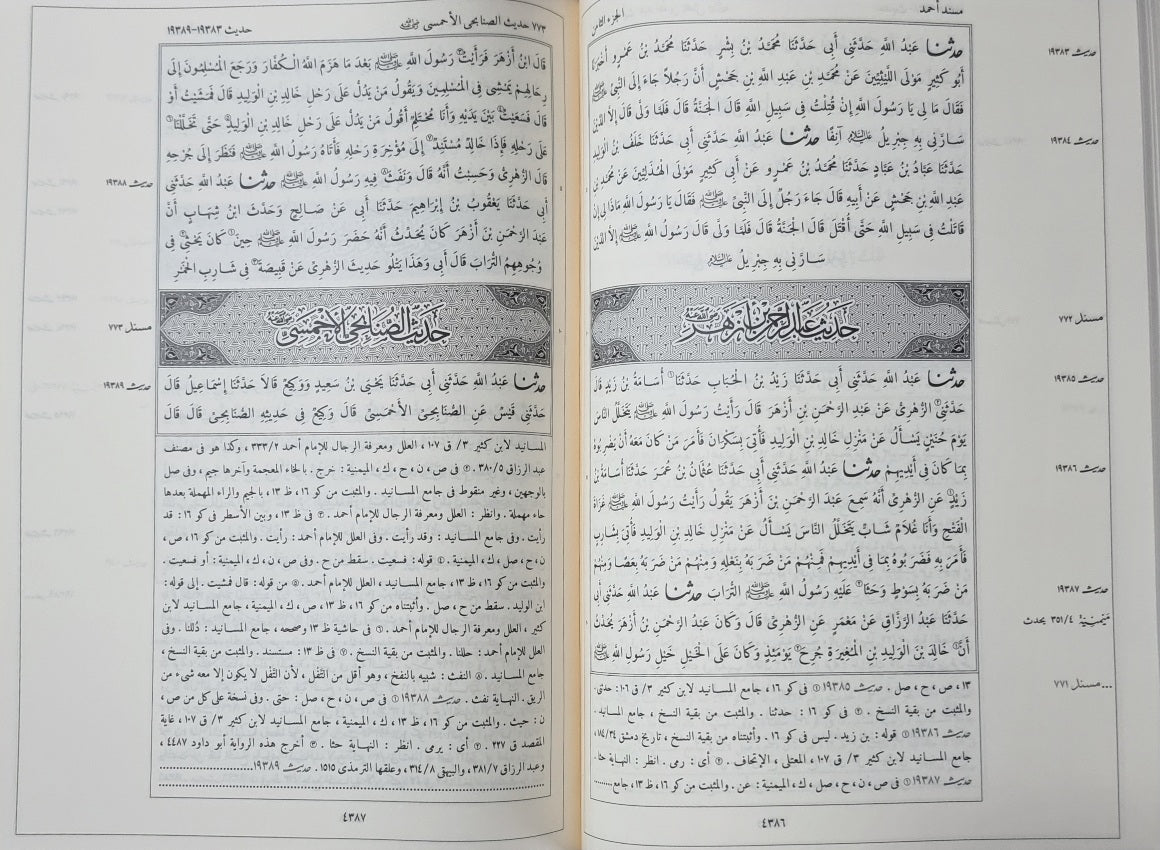 مسند أحمد
الجزء الثامن
حديث ١٩٣٨٣
حدثنا عَبْدُ اللَّهِ حَدَّثَنِي أَبِي حَدَّثَنَا مُحَمَّدُ بْنُ بِشْرٍ حَدَّثَنَا مُحَمَّدُ بْنُ عَمْرٍو
أَبُو كَثِيرٍ مَوْلَى اللَّيْثِيِّينَ عَنْ مُحَمَّدِ بْنِ عَبْدِ اللَّهِ بْنِ جَحْشٍ أَنَّ رَجُلاً جَاءَ إِلَى النَّبِيِّ ﷺ
فَقَالَ مَا لِي يَا رَسُولَ اللَّهِ إِنْ قُتِلْتُ فِي سَبِيلِ اللَّهِ قَالَ الْجَنَّةُ قَالَ فَلَمَّا وَلَّى قَالَ إِلاَّ الدَّيْنَ
حديث ١٩٣٨٤
سَارَّنِي بِهِ جِبْرِيلُ عليه السلام آنِفًا حدثنا عَبْدُ اللَّهِ حَدَّثَنِي أَبِي حَدَّثَنَا خَلَفُ بْنُ الْوَلِيدِ
حَدَّثَنَا عَبَّادُ بْنُ عَبَّادٍ حَدَّثَنَا مُحَمَّدُ بْنُ عَمْرٍو عَنْ أَبِي كَثِيرٍ مَوْلَى الْهُذَلِيِّينَ عَنْ مُحَمَّدِ بْنِ
عَبْدِ اللَّهِ بْنِ جَحْشٍ عَنْ أَبِيهِ قَالَ جَاءَ رَجُلٌ إِلَى النَّبِيِّ ﷺ فَقَالَ يَا رَسُولَ اللَّهِ مَاذَا لِي إِنْ
قَاتَلْتُ فِي سَبِيلِ اللَّهِ حَتَّى أُقْتَلَ قَالَ الْجَنَّةُ قَالَ فَلَمَّا وَلَّى قَالَ رَسُولُ اللَّهِ ﷺ إِلاَّ الدَّيْنَ
سَارَّنِي بِهِ جِبْرِيلُ عليه السلام
مسند ٧٧٢
حديث عبد الرحمن بن أزهر رضي الله عنه
حديث ١٩٣٨٥
حدثنا عَبْدُ اللَّهِ حَدَّثَنِي أَبِي حَدَّثَنَا زَيْدُ بْنُ الْحُبَابِ حَدَّثَنَا① أُسَامَةُ بْنُ زَيْدٍ قَالَ
حَدَّثَنِي② الزُّهْرِيُّ عَنْ عَبْدِ الرَّحْمَنِ بْنِ أَزْهَرَ قَالَ رَأَيْتُ رَسُولَ اللَّهِ ﷺ يَتَخَلَّلُ النَّاسَ
يَوْمَ حُنَيْنٍ يَسْأَلُ عَنْ مَنْزِلِ خَالِدِ بْنِ الْوَلِيدِ فَأُتِيَ بِسَكْرَانَ فَأَمَرَ مَنْ كَانَ مَعَهُ أَنْ يَضْرِبُوهُ
حديث ١٩٣٨٦
بِمَا كَانَ فِي أَيْدِيهِمْ حدثنا عَبْدُ اللَّهِ حَدَّثَنِي أَبِي حَدَّثَنَا عُثْمَانُ بْنُ عُمَرَ حَدَّثَنَا أُسَامَةُ بْنُ
زَيْدٍ① عَنِ الزُّهْرِيِّ أَنَّهُ سَمِعَ عَبْدَ الرَّحْمَنِ بْنَ أَزْهَرَ يَقُولُ رَأَيْتُ رَسُولَ اللَّهِ ﷺ غَزَاةَ
الْفَتْحِ وَأَنَا غُلاَمٌ شَابٌّ يَتَخَلَّلُ النَّاسَ يَسْأَلُ عَنْ مَنْزِلِ خَالِدِ بْنِ الْوَلِيدِ فَأُتِيَ بِشَارِبٍ
فَأَمَرَ بِهِ فَضَرَبُوهُ بِمَا فِي أَيْدِيهِمْ فَمِنْهُمْ مَنْ ضَرَبَهُ بِنَعْلِهِ وَمِنْهُمْ مَنْ ضَرَبَهُ بِعَصًا وَمِنْهُمْ
حديث ١٩٣٨٧
مَنْ ضَرَبَهُ بِسَوْطٍ وَحَثَا② عَلَيْهِ رَسُولُ اللَّهِ ﷺ التُّرَابَ حدثنا عَبْدُ اللَّهِ حَدَّثَنِي أَبِي
مَيْمَنِيّة ٣٥١/٤ يحدث
حَدَّثَنَا عَبْدُ الرَّزَّاقِ عَنْ مَعْمَرٍ عَنِ الزُّهْرِيِّ قَالَ وَكَانَ عَبْدُ الرَّحْمَنِ بْنُ أَزْهَرَ يُحَدِّثُ
أَنَّ① خَالِدَ بْنَ الْوَلِيدِ بْنِ الْمُغِيرَةِ جُرِحَ② يَوْمَئِذٍ وَكَانَ عَلَى الْخَيْلِ خَيْلِ رَسُولِ اللَّهِ ﷺ
... مسند ٧٧١
١٣، ص، ح، صل. حديث ١٩٣٨٥ ① في كو ١٦، جامع المسانيد لابن كثير ٣/ ق ١٠٦: حدثني.
والمثبت من بقية النسخ. ② في كو ١٦: حدثنا. والمثبت من بقية النسخ، جامع المسانيد.
حديث ١٩٣٨٦ ① قوله: بن زيد. ليس في كو ١٦. وأثبتناه من بقية النسخ، تاريخ دمشق ١٨٤/٣٤،
جامع المسانيد لابن كثير ٣/ ق ١٠٧، المعتلي، الإتحاف. ② أي: رمى. انظر: النهاية حثا.
حديث ١٩٣٨٧ ① في ص، ن، ح، صل، ك، الميمنية: عن. والمثبت من كو ١٦، ظ ١٣، جامع
٤٣٨٦
٧٧٣ حديث الصنابحي الأحمسي رضي الله عنه
حديث ١٩٣٨٣-١٩٣٨٩
قَالَ ابْنُ أَزْهَرَ فَرَأَيْتُ③ رَسُولَ اللَّهِ ﷺ بَعْدَ مَا هَزَمَ اللَّهُ الْكُفَّارَ وَرَجَعَ الْمُسْلِمُونَ إِلَى
رِحَالِهِمْ يَمْشِي فِي الْمُسْلِمِينَ وَيَقُولُ مَنْ يَدُلُّ عَلَى رَحْلِ خَالِدِ بْنِ الْوَلِيدِ قَالَ فَمَشَيْتُ أَوْ
قَالَ فَسَعَيْتُ④ بَيْنَ يَدَيْهِ وَأَنَا مُحْتَلِمٌ أَقُولُ مَنْ يَدُلُّ عَلَى رَحْلِ خَالِدِ بْنِ الْوَلِيدِ⑤ حَتَّى تَخَلَّلْنَا⑥
عَلَى رَحْلِهِ فَإِذَا خَالِدٌ مُسْتَنِدٌ⑦ إِلَى مُؤْخِرَةِ رَحْلِهِ فَأَتَاهُ رَسُولُ اللَّهِ ﷺ فَنَظَرَ إِلَى جُرْحِهِ
حديث ١٩٣٨٨
قَالَ الزُّهْرِيُّ وَحَسِبْتُ أَنَّهُ قَالَ وَنَفَثَ⑧ فِيهِ رَسُولُ اللَّهِ ﷺ حدثنا عَبْدُ اللَّهِ حَدَّثَنِي
أَبِي حَدَّثَنَا يَعْقُوبُ بْنُ إِبْرَاهِيمَ حَدَّثَنَا أَبِي عَنْ صَالِحٍ وَحَدَّثَ ابْنُ شِهَابٍ أَنَّ
عَبْدَ الرَّحْمَنِ بْنَ أَزْهَرَ كَانَ يُحَدِّثُ أَنَّهُ حَضَرَ رَسُولَ اللَّهِ ﷺ حِينَ① كَانَ يَحْثِي② فِي
وُجُوهِهِمُ التُّرَابَ قَالَ أَبِي وَهَذَا يَتْلُو حَدِيثَ الزُّهْرِيِّ عَنْ قَبِيصَةَ③ فِي شَارِبِ الْخَمْرِ
مسند ٧٧٣
حديث الصنابحي الأحمسي رضي الله عنه
حديث ١٩٣٨٩
حدثنا عَبْدُ اللَّهِ حَدَّثَنِي أَبِي حَدَّثَنَا يَحْيَى بْنُ سَعِيدٍ وَوَكِيعٌ قَالاَ حَدَّثَنَا إِسْمَاعِيلُ قَالَ
حَدَّثَنِي قَيْسٌ عَنِ الصُّنَابِحِيِّ الأَحْمَسِيِّ قَالَ وَكِيعٌ فِي حَدِيثِهِ الصُّنَابِحِيِّ قَالَ قَالَ
المسانيد لابن كثير ٣/ ق ١٠٧، العلل ومعرفة الرجال للإمام أحمد ٣٣٣/٢، وكذا هو في مصنف
عبد الرزاق ٣٨٠/٥. ② في ص، ن، ح، ك، الميمنية: خرج. بالخاء المعجمة وآخرها جيم، وفي صل
بالوجهين، وغير منقوط في جامع المسانيد. والمثبت من كو ١٦، ظ ١٣، بالجيم والراء المهملة بعدها
حاء مهملة. وانظر: العلل ومعرفة الرجال للإمام أحمد. ③ في ظ ١٣، وبين الأسطر في كو ١٦: قد
رأيت. وفي جامع المسانيد: وقد رأيت. وفي العلل للإمام أحمد: رأيت. والمثبت من كو ١٦، ص،
ن، ح، صل، ك، الميمنية. ④ قوله: فسعيت. سقط من ح. وفي ص، ن، ك، الميمنية: أو فسعيت.
والمثبت من كو ١٦، ظ ١٣، جامع المسانيد، العلل للإمام أحمد. ⑤ من قوله: قال فمشيت. إلى قوله:
ابن الوليد. سقط من ح، صل. وأثبتناه من كو ١٦، ظ ١٣، ص، ك، الميمنية، جامع المسانيد لابن
كثير، العلل ومعرفة الرجال للإمام أحمد. ⑥ في حاشية ظ ١٣ وصححه، جامع المسانيد: دُللنا. وفي
العلل للإمام أحمد: حللنا. والمثبت من بقية النسخ. ⑦ في ظ ١٣: مستسند. والمثبت من بقية النسخ،
جامع المسانيد. ⑧ النفث: شبيه بالنفخ، وهو أقل من التَّفْل، لأن التَّفْل لا يكون إلا معه شيء من
الريق. النهاية نفث. حديث ١٩٣٨٨ ① في ص، ن، ح، صل: حتى. وفي نسخة على كل من ص،
ن: حيث. والمثبت من كو ١٦، ظ ١٣، ك، الميمنية، جامع المسانيد لابن كثير ٣/ ق ١٠٧، غاية
المقصد ق ٢٢٧. ② أي: يرمي. انظر: النهاية حثا. ③ أخرج هذه الرواية أبو داود ٤٤٨٧،
وعبد الرزاق ٣٨١/٧، والبيهقي ٣١٤/٨، وعلقها الترمذي ١٥١٥. حديث ١٩٣٨٩
٤٣٨٧